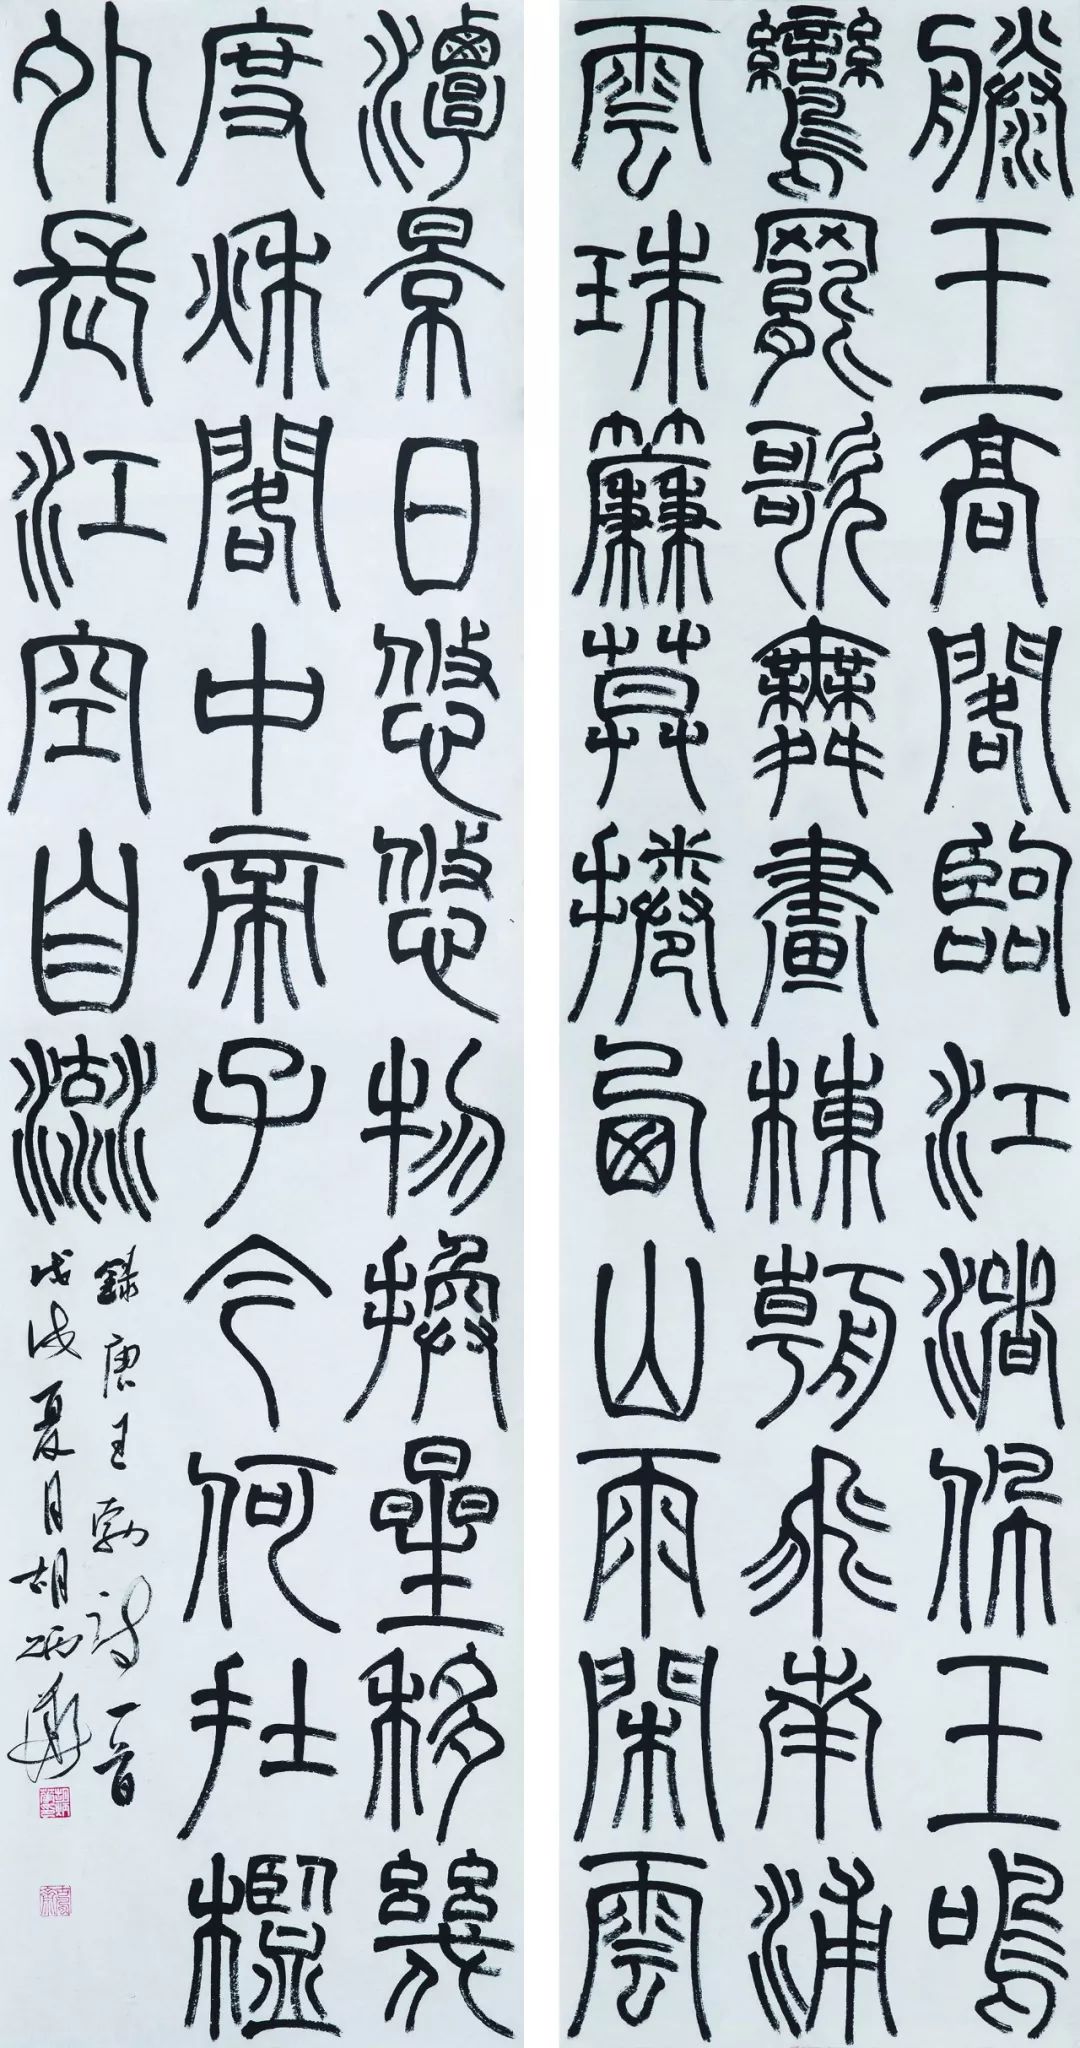 滕王高閣臨江渚佩玉鳴
鸞罷歌舞畫棟朝飛南浦
雲珠簾莫捲西山雨閑雲
潭景日悠悠物換星移幾
度秌閣中帝子今何在檻
外長江空自流
錄唐王勃詩一首
戊戌夏月胡炳